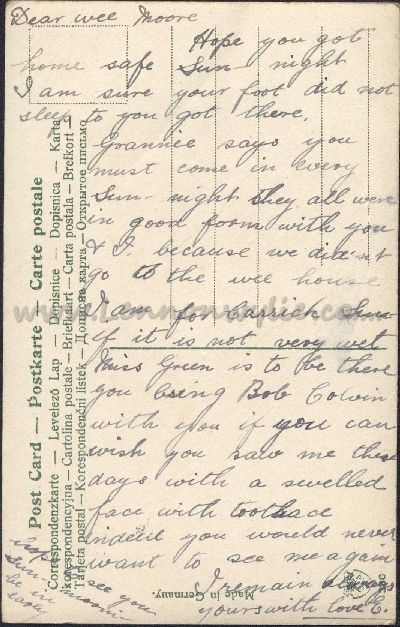 Dear wee Moore
Hope you got
home safe Sun night
I am sure your foot did not
sleep to you got there.
Grannie says you
must come in every
Sun- night they all were
in good form with you
& I. because we did'nt
go to the wee house
I am for Carrick Sun-
if it is not very wet
Miss Green is to be there
you bring Bob Colvin
with you if you can
wish you saw me these
days with a swelled
face with toothace
indeed you would never
want to see me again
I remain always
yours with love E.
hope to see you
Sun-
be in
Post Card — Postkarte — Carte postale
Correspondenzkarte — Levelező Lap — Dopisnice — Dopisnica — Karta
korespondencyjna — Cartolina postale — Briefkaart — Carta postala — Brefkort —
Tarjeta postal — Korespondenční lístek — Дописна карта — Открытое письмо
Made in Germany.